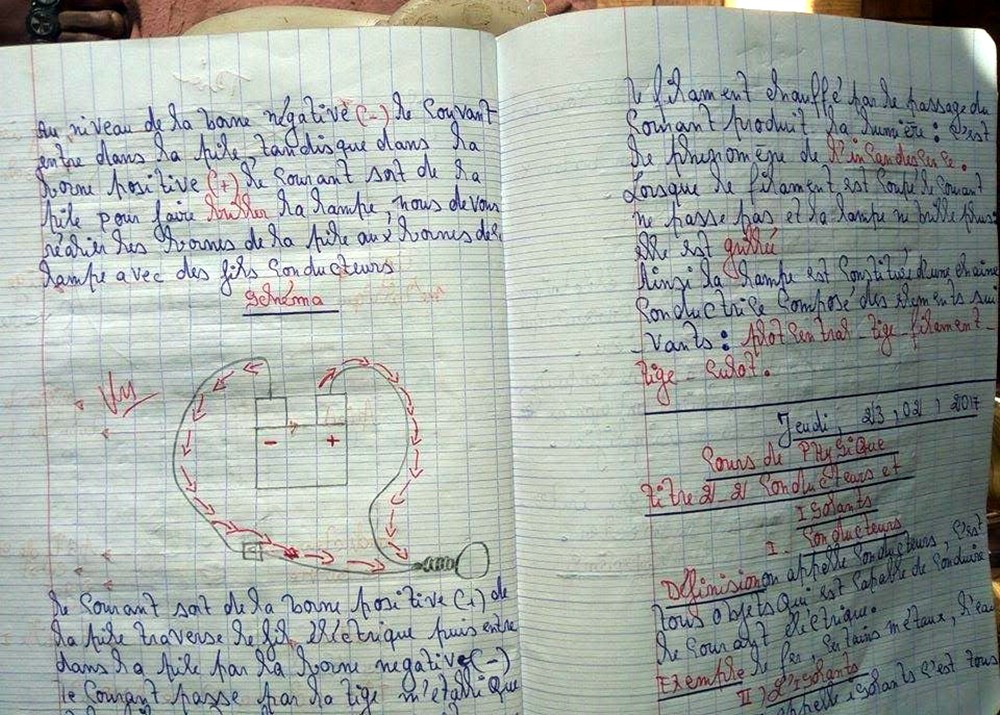 Au niveau de la borne négative (-) le courant
entre dans la pile, tandisque dans la
borne positive (+) le courant sort de la
pile pour faire briller la lampe, nous devons
rélier les bornes de la pile aux bornes de la
lampe avec des fils conducteurs
Schéma
Vu
- +
le courant sort de la borne positive (+) de
la pile traverse le fil éléctrique puis entre
dans la pile par la borne negative (-)
le courant passe par la tige métallique
le filament chauffé par le passage du
courant produit la lumière : c'est
le phénomène de l'incandescence.
Lorsque le filament est coupé le courant
ne passe pas et la lampe ne brille plus
elle est grillée
Ainsi la lampe est constituée d'une chaine
conductrice composé des élements sui
-vants : plot central - tige - filament -
tige - culot.
Jeudi, 23, 02, 2017
Cours de Physique
titre 2-2 Conducteurs et
Isolants
I- Conducteurs
Définision on appelle conducteurs, c'est
tous objets qui est capable de conduire
le courant électrique.
Exemple le fer, certains métaux, l'eau
II) L'Isolants
appelle isolants c'est tous